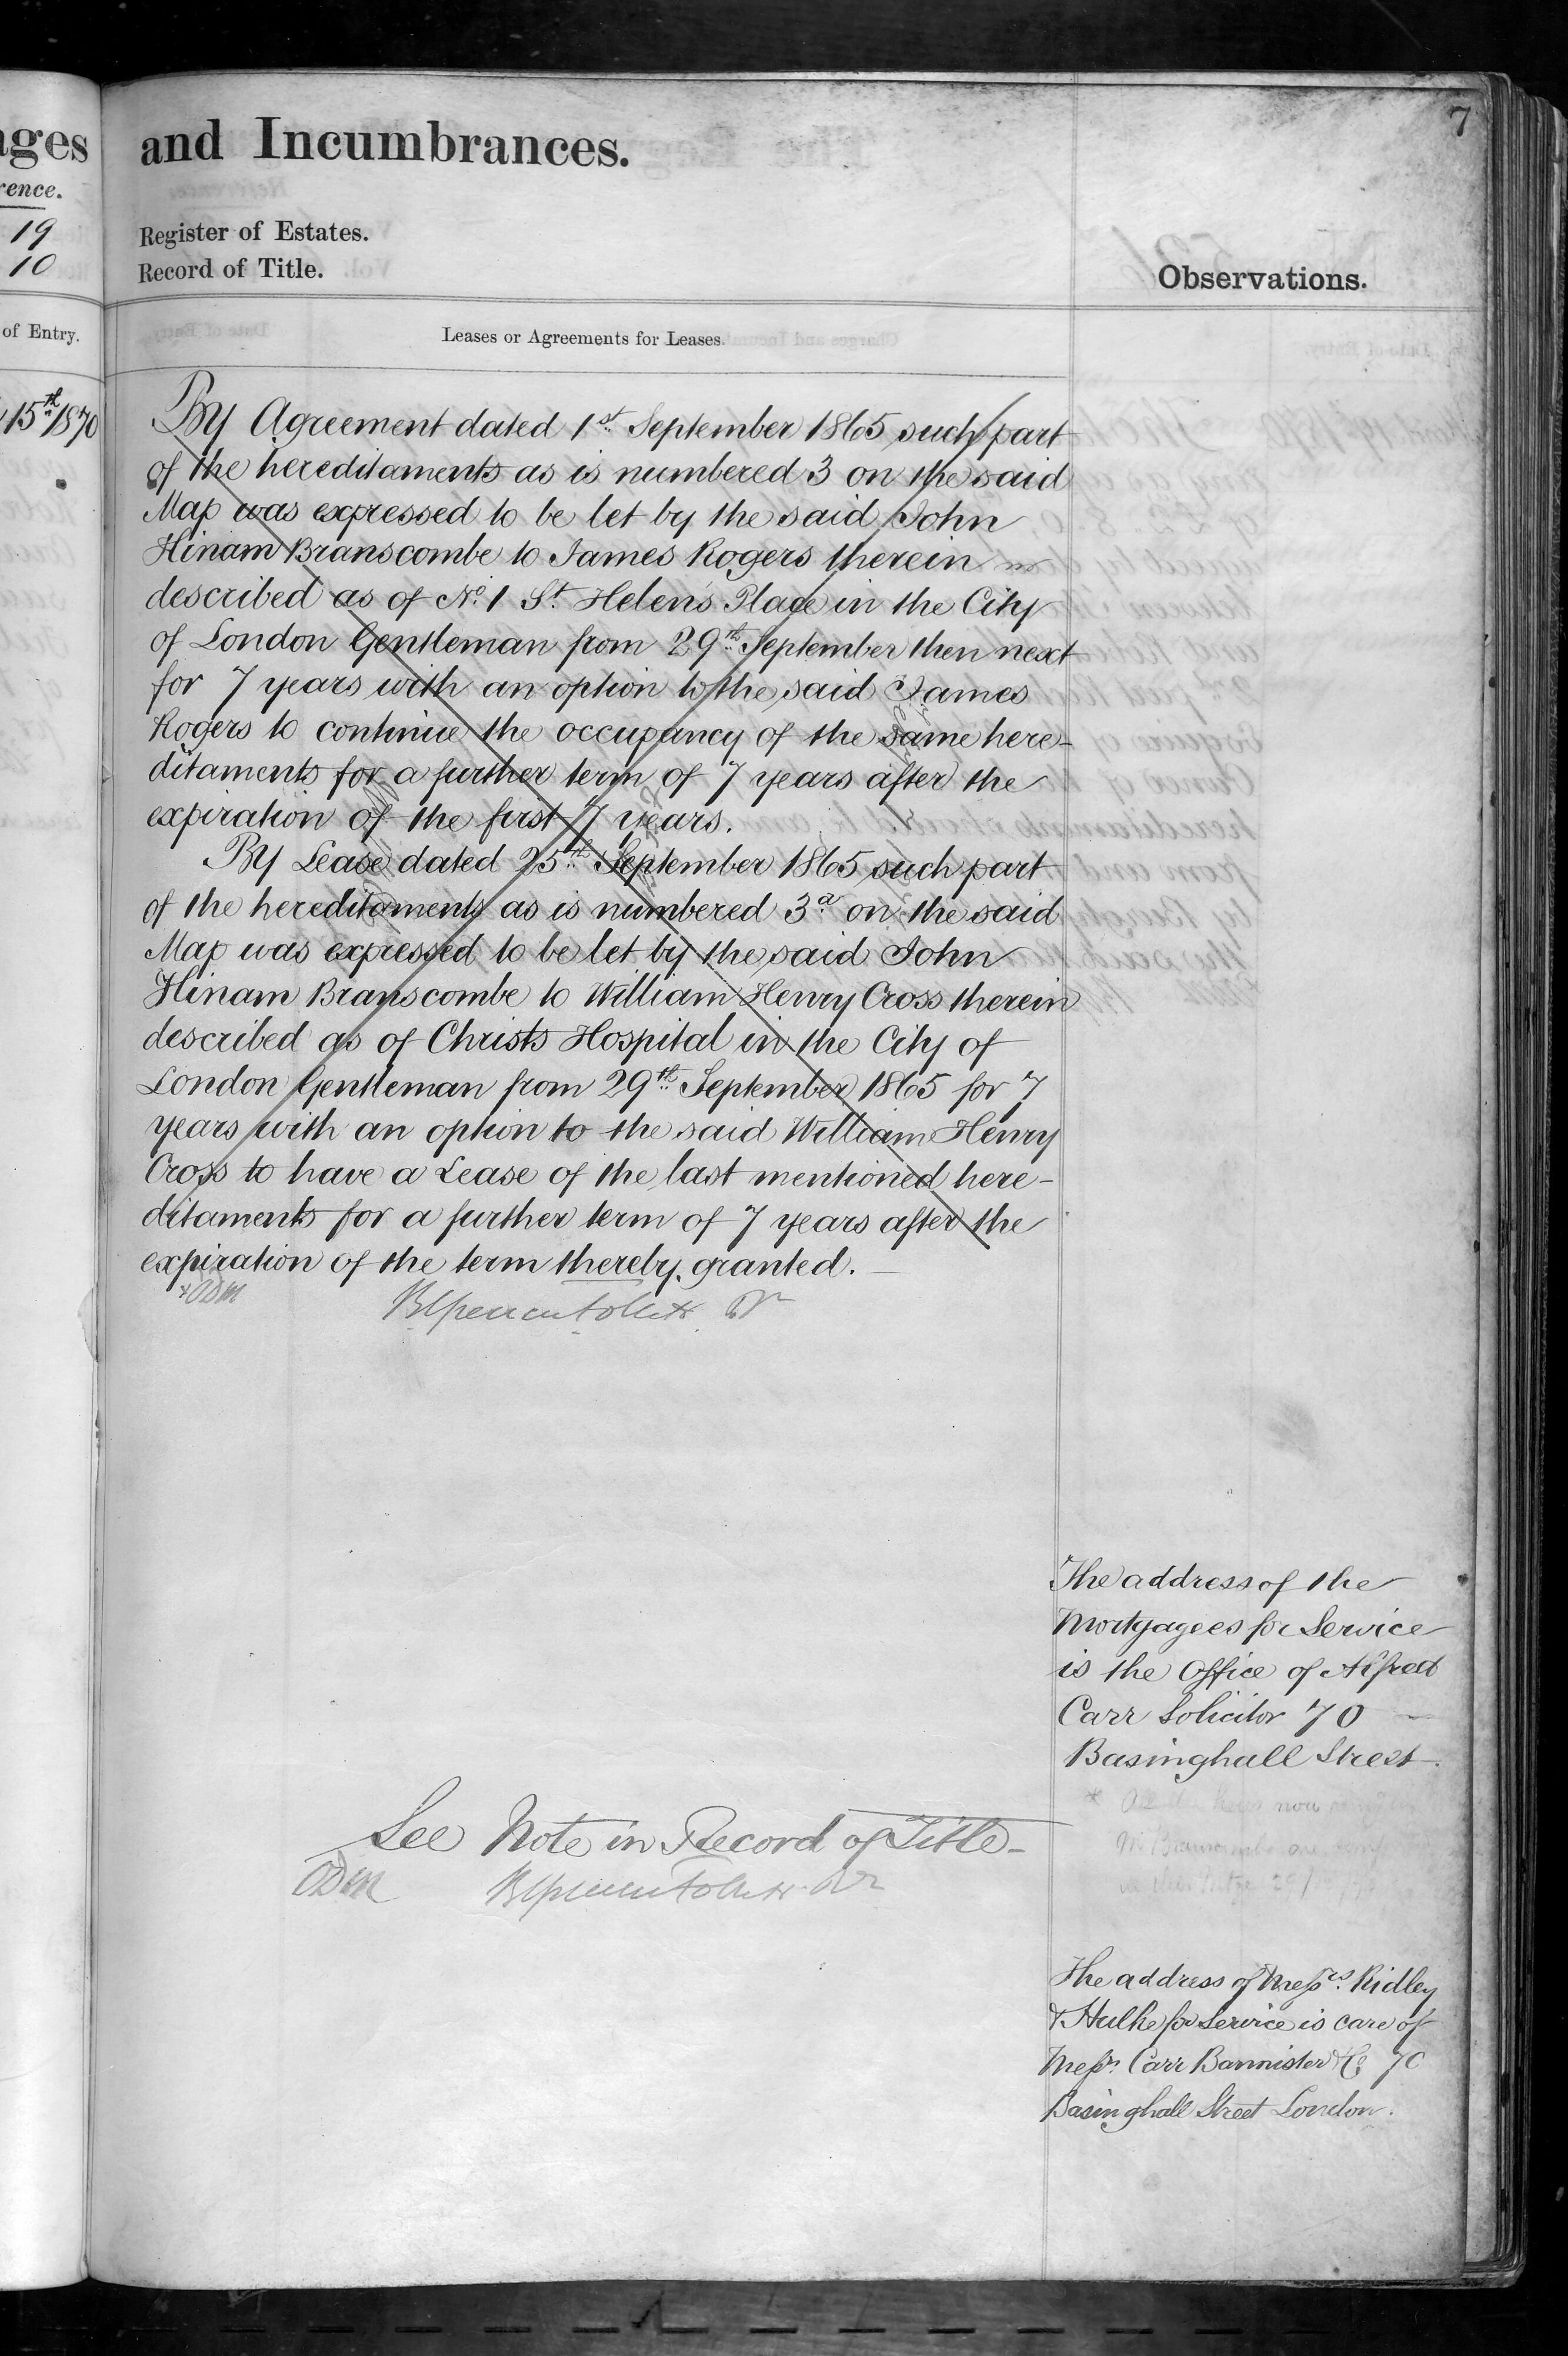 7
ages
rence.
19
10
of Entry.
15th 1870
and Incumbrances.
Register of Estates.
Record of Title.
Observations.
Leases or Agreements for Leases.
By Agreement dated 1st September 1865 such part
of the hereditaments as is numbered 3 on the said
Map was expressed to be let by the said John
Hinam Branscombe to James Rogers therein
described as of No. 1 St. Helen's Place in the City
of London Gentleman from 29th September then next
for 7 years with an option to the said James
Rogers to continue the occupancy of the same here-
ditaments for a further term of 7 years after the
expiration of the first 7 years.
By Lease dated 25th September 1865 such part
of the hereditaments as is numbered 3a on the said
Map was expressed to be let by the said John
Hinam Branscombe to William Henry Cross therein
described as of Christs Hospital in the City of
London Gentleman from 29th September 1865 for 7
years with an option to the said William Henry
Cross to have a Lease of the last mentioned here-
ditaments for a further term of 7 years after the
expiration of the term thereby granted.
See Note in Record of Title
The address of the
Mortgagees for Service
is the Office of Alfred
Carr Solicitor 70
Basinghall Street
The address of Messrs. Ridley
& Hulke for Service is care of
Messrs Carr Bannister & Co 70
Basinghall Street London.